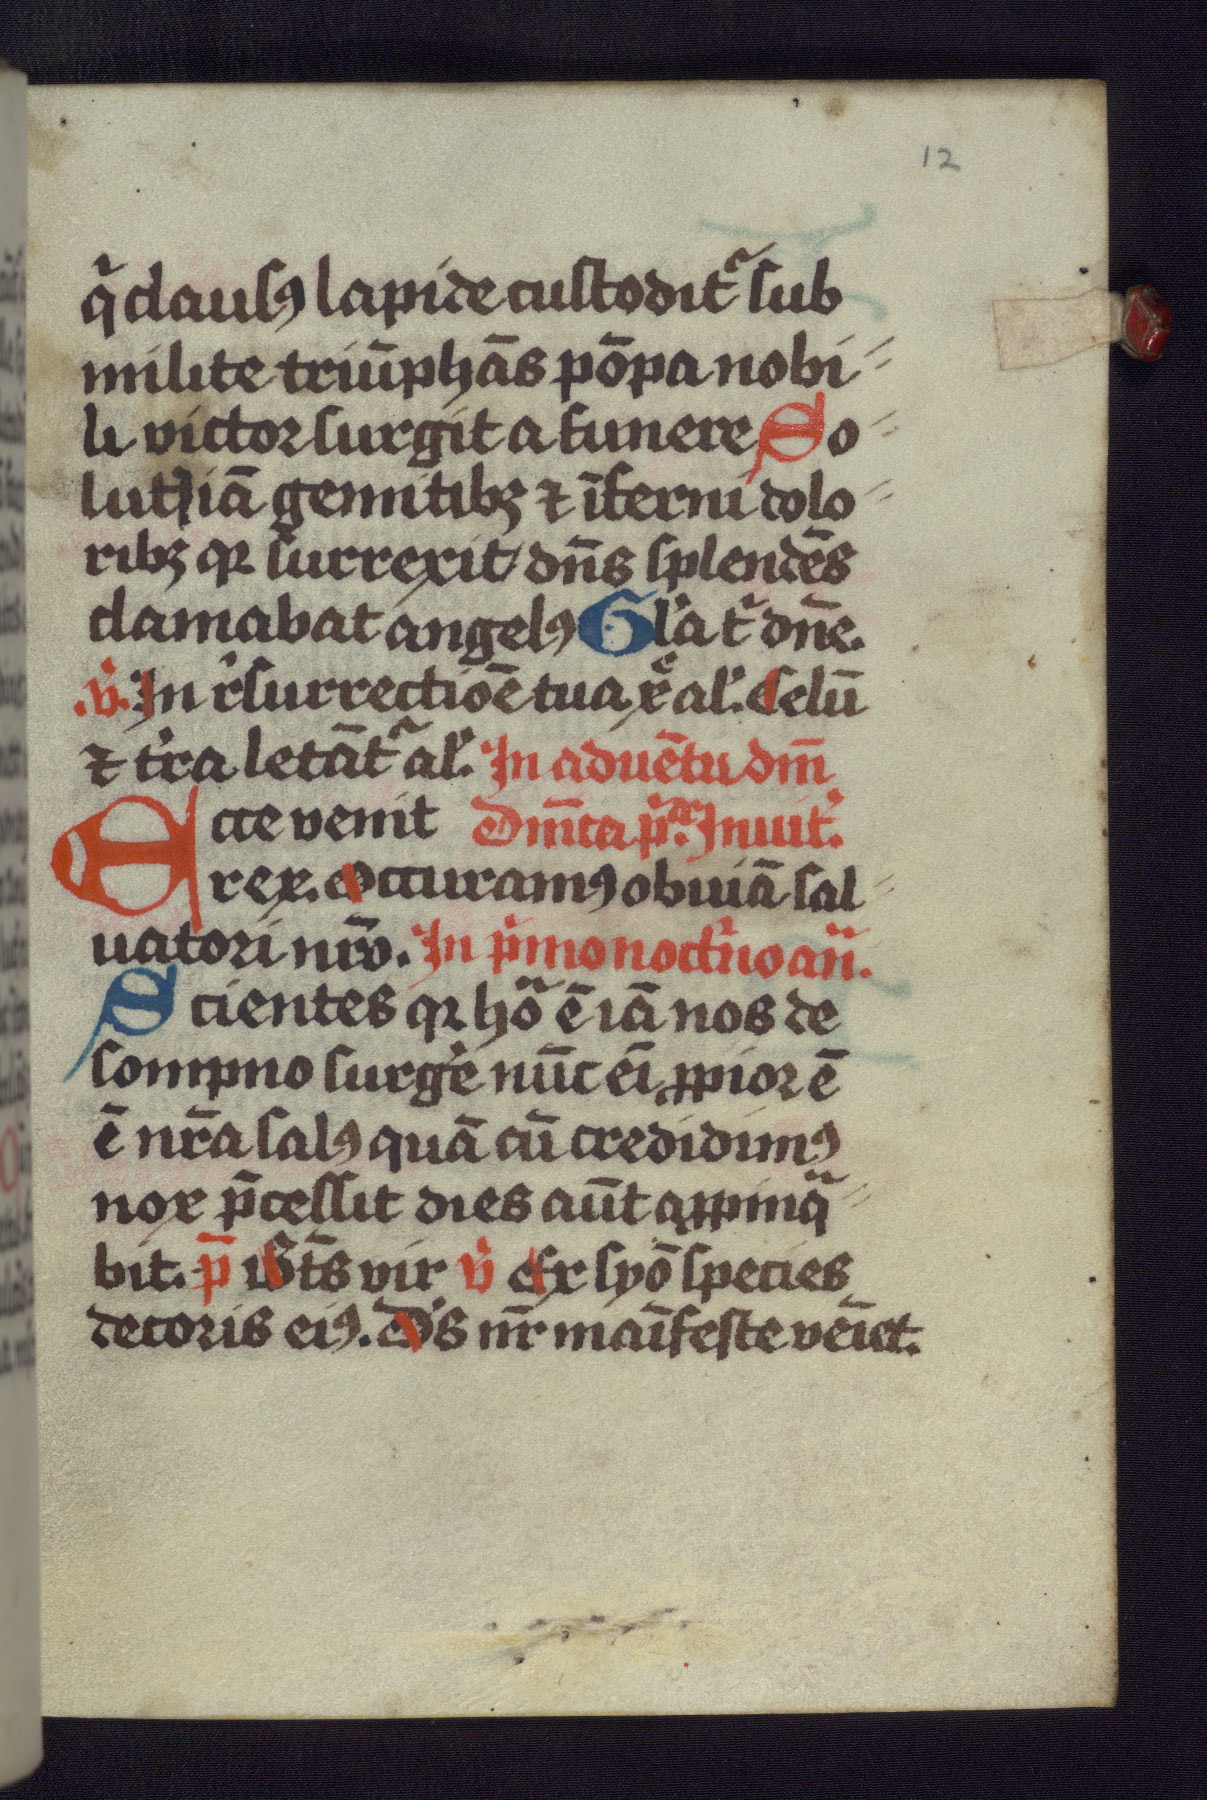 12
qͣ clausꝰ lapide custoditᷣ sub
milite triūphās pōpa nobi
li victor surgit a funere So
lutis iā gemitibꝫ ⁊ īferni dolo
ribꝫ qꝛ surrexit dn̄s splendēs
clamabat angelꝰ Gl̓a tͥ dn̄e.
.v̓. In r̓surrectiōe tua xͤ al̓. Celū
⁊ t̓ra letāt᷑ al̓. In aduētu dm̄
Ecce venit Dm̄ca pͥᵃ Inuit᷑.
rex. Occuramꝰ obuiā sal
uatori nr̄o. In pͥmo noct̓no an̄.
Scientes qꝛ hōͣ ē iā nos de
sompno surg̓e nūc eī ꝓpior ē
ē nr̄a salꝰ quā cū credidimꝰ
nox p̄cessit dies aūt aꝓpinqͣ
bit. p̄ Bt̄s vir v̓ Ex syō species
decoris eiꝰ. Ds̓ nr̄ maīfeste vēiet.